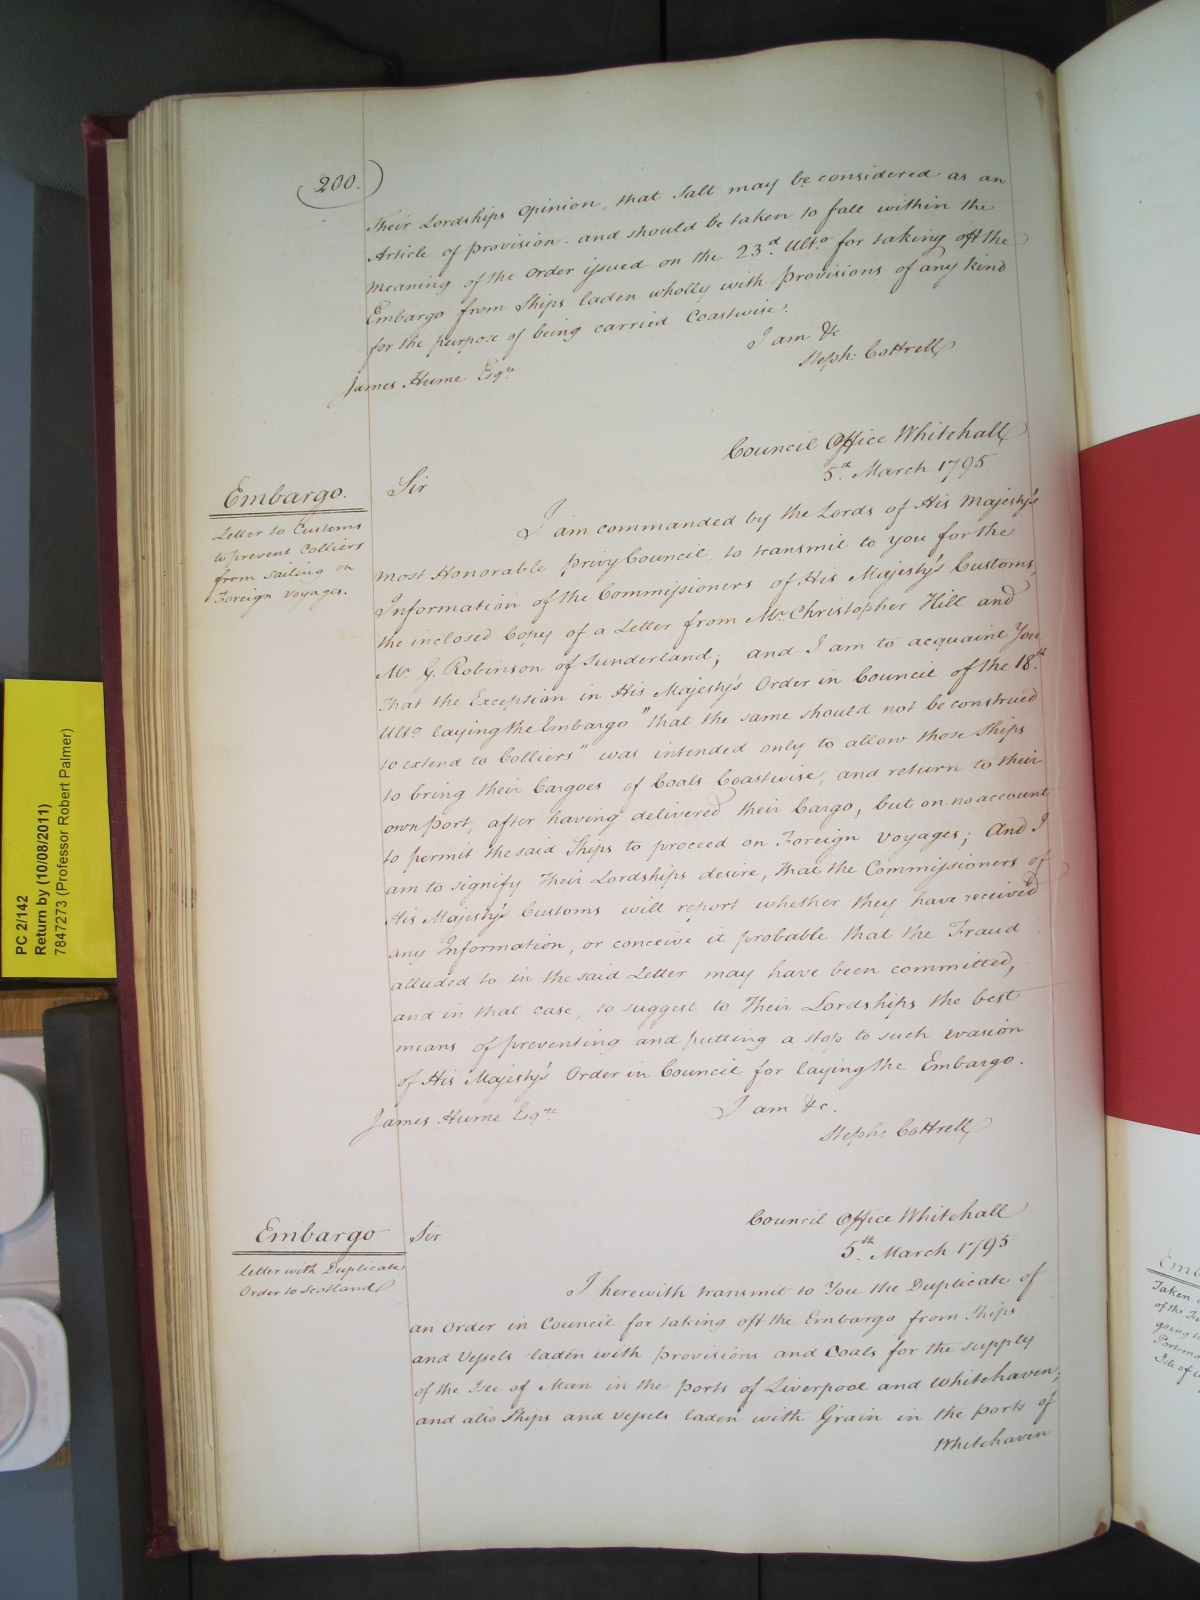 200.
Their Lordships Opinion, that Salt may be considered as an
Article of provision - and should be taken to fall within the
meaning of the Order issued on the 23.d Ulto. for taking off the
Embargo from Ships laden wholly with Provisions of any kind
for the purpose of being carried Coastwise.
I am &c
Steph. Cottrell
James Hume Esqre
Council Office Whitehall
5th March 1795
Embargo.
Letter to Customs
to prevent Colliers
from sailing on
Foreign Voyages.
Sir
I am commanded by the Lords of His Majesty's
most Honorable Privy Council, to transmit to you for the
Information of the Commissioners of His Majesty's Customs,
the inclosed Copy of a Letter from Mr. Christopher Hill and
Mr. G. Robinson of Sunderland; and I am to acquaint You
that the Exception in His Majesty's Order in Council of the 18.th
Ulto. laying the Embargo "that the same should not be construed
to extend to Colliers" was intended only to allow those Ships
to bring their Cargoes of Coals Coastwise, and return to their
own port, after having delivered their Cargo, but on no account
to permit the said Ships to proceed on Foreign Voyages; And I
am to signify Their Lordships desire, that the Commissioners of
His Majesty's Customs will report whether they have received
any Information, or conceive it probable that the Fraud
alluded to in the said Letter may have been committed,
and in that case, to suggest to Their Lordships the best
means of preventing and putting a stop to such evasion
of His Majesty's Order in Council for laying the Embargo.
I am &c.
James Hume Esqre
Steph. Cottrell
Council Office Whitehall
5.th March 1795
Embargo
Letter with Duplicate
Order to Scotland
Sir
I herewith transmit to You the Duplicate of
an Order in Council for taking off the Embargo from Ships
and Vessels laden with provisions and Coals for the supply
of the Isle of Man in the ports of Liverpool and Whitehaven;
and also Ships and Vessels laden with Grain in the ports of
Whitehaven
PC 2/142
Return by (10/08/2011)
7847273 (Professor Robert Palmer)
Taken
of the
going
Isle of